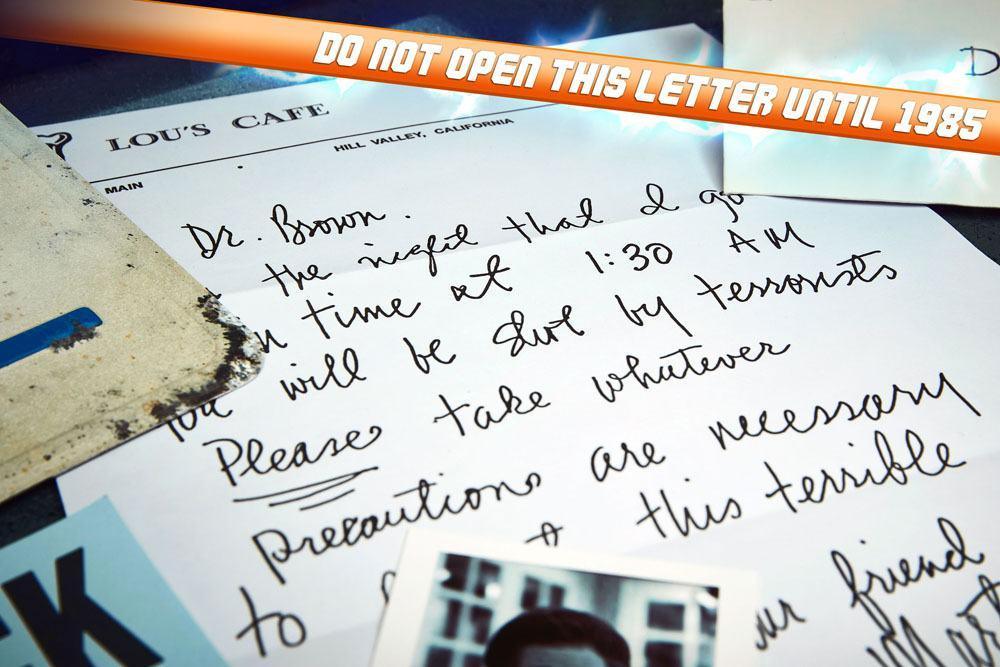 DO NOT OPEN THIS LETTER UNTIL 1985
LOU'S CAFE
HILL VALLEY, CALIFORNIA
MAIN
Dr. Brown.
the night that I go
n time at 1:30 AM
You will be shot by terrorists
Please take whatever
precautions are necessary
to this terrible
friend
K
D